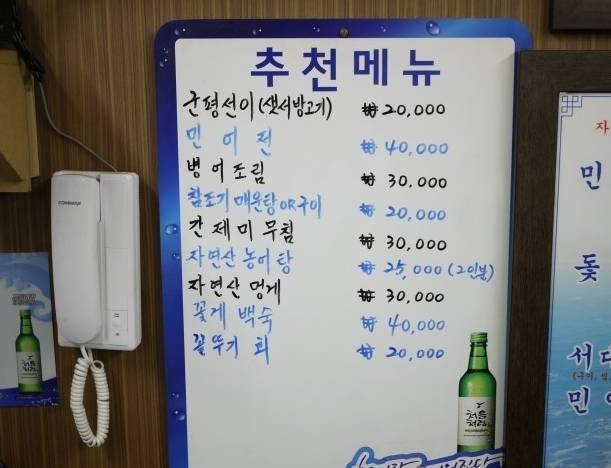 추천메뉴
군평선이(샛서방고기) ₩ 20,000
민어전 ₩ 40,000
병어조림 ₩ 30,000
참조기 매운탕 OR 구이 ₩ 20,000
간제미 무침 ₩ 30,000
자연산 농어탕 ₩ 25,000 (2인분)
자연산 멍게 ₩ 30,000
꽃게 백숙 ₩ 40,000
꼴뚜기 회 ₩ 20,000
처음
처럼
COMMAX
자
민
돛
서대
민어